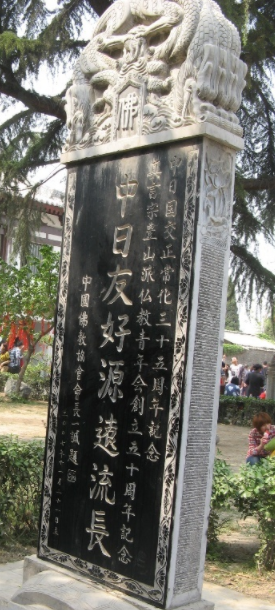 佛
中日国交正常化三十五周年記念
真言宗豊山派仏教青年会創立五十周年記念
中日友好源遠流長
中國佛教協會會長一誠題